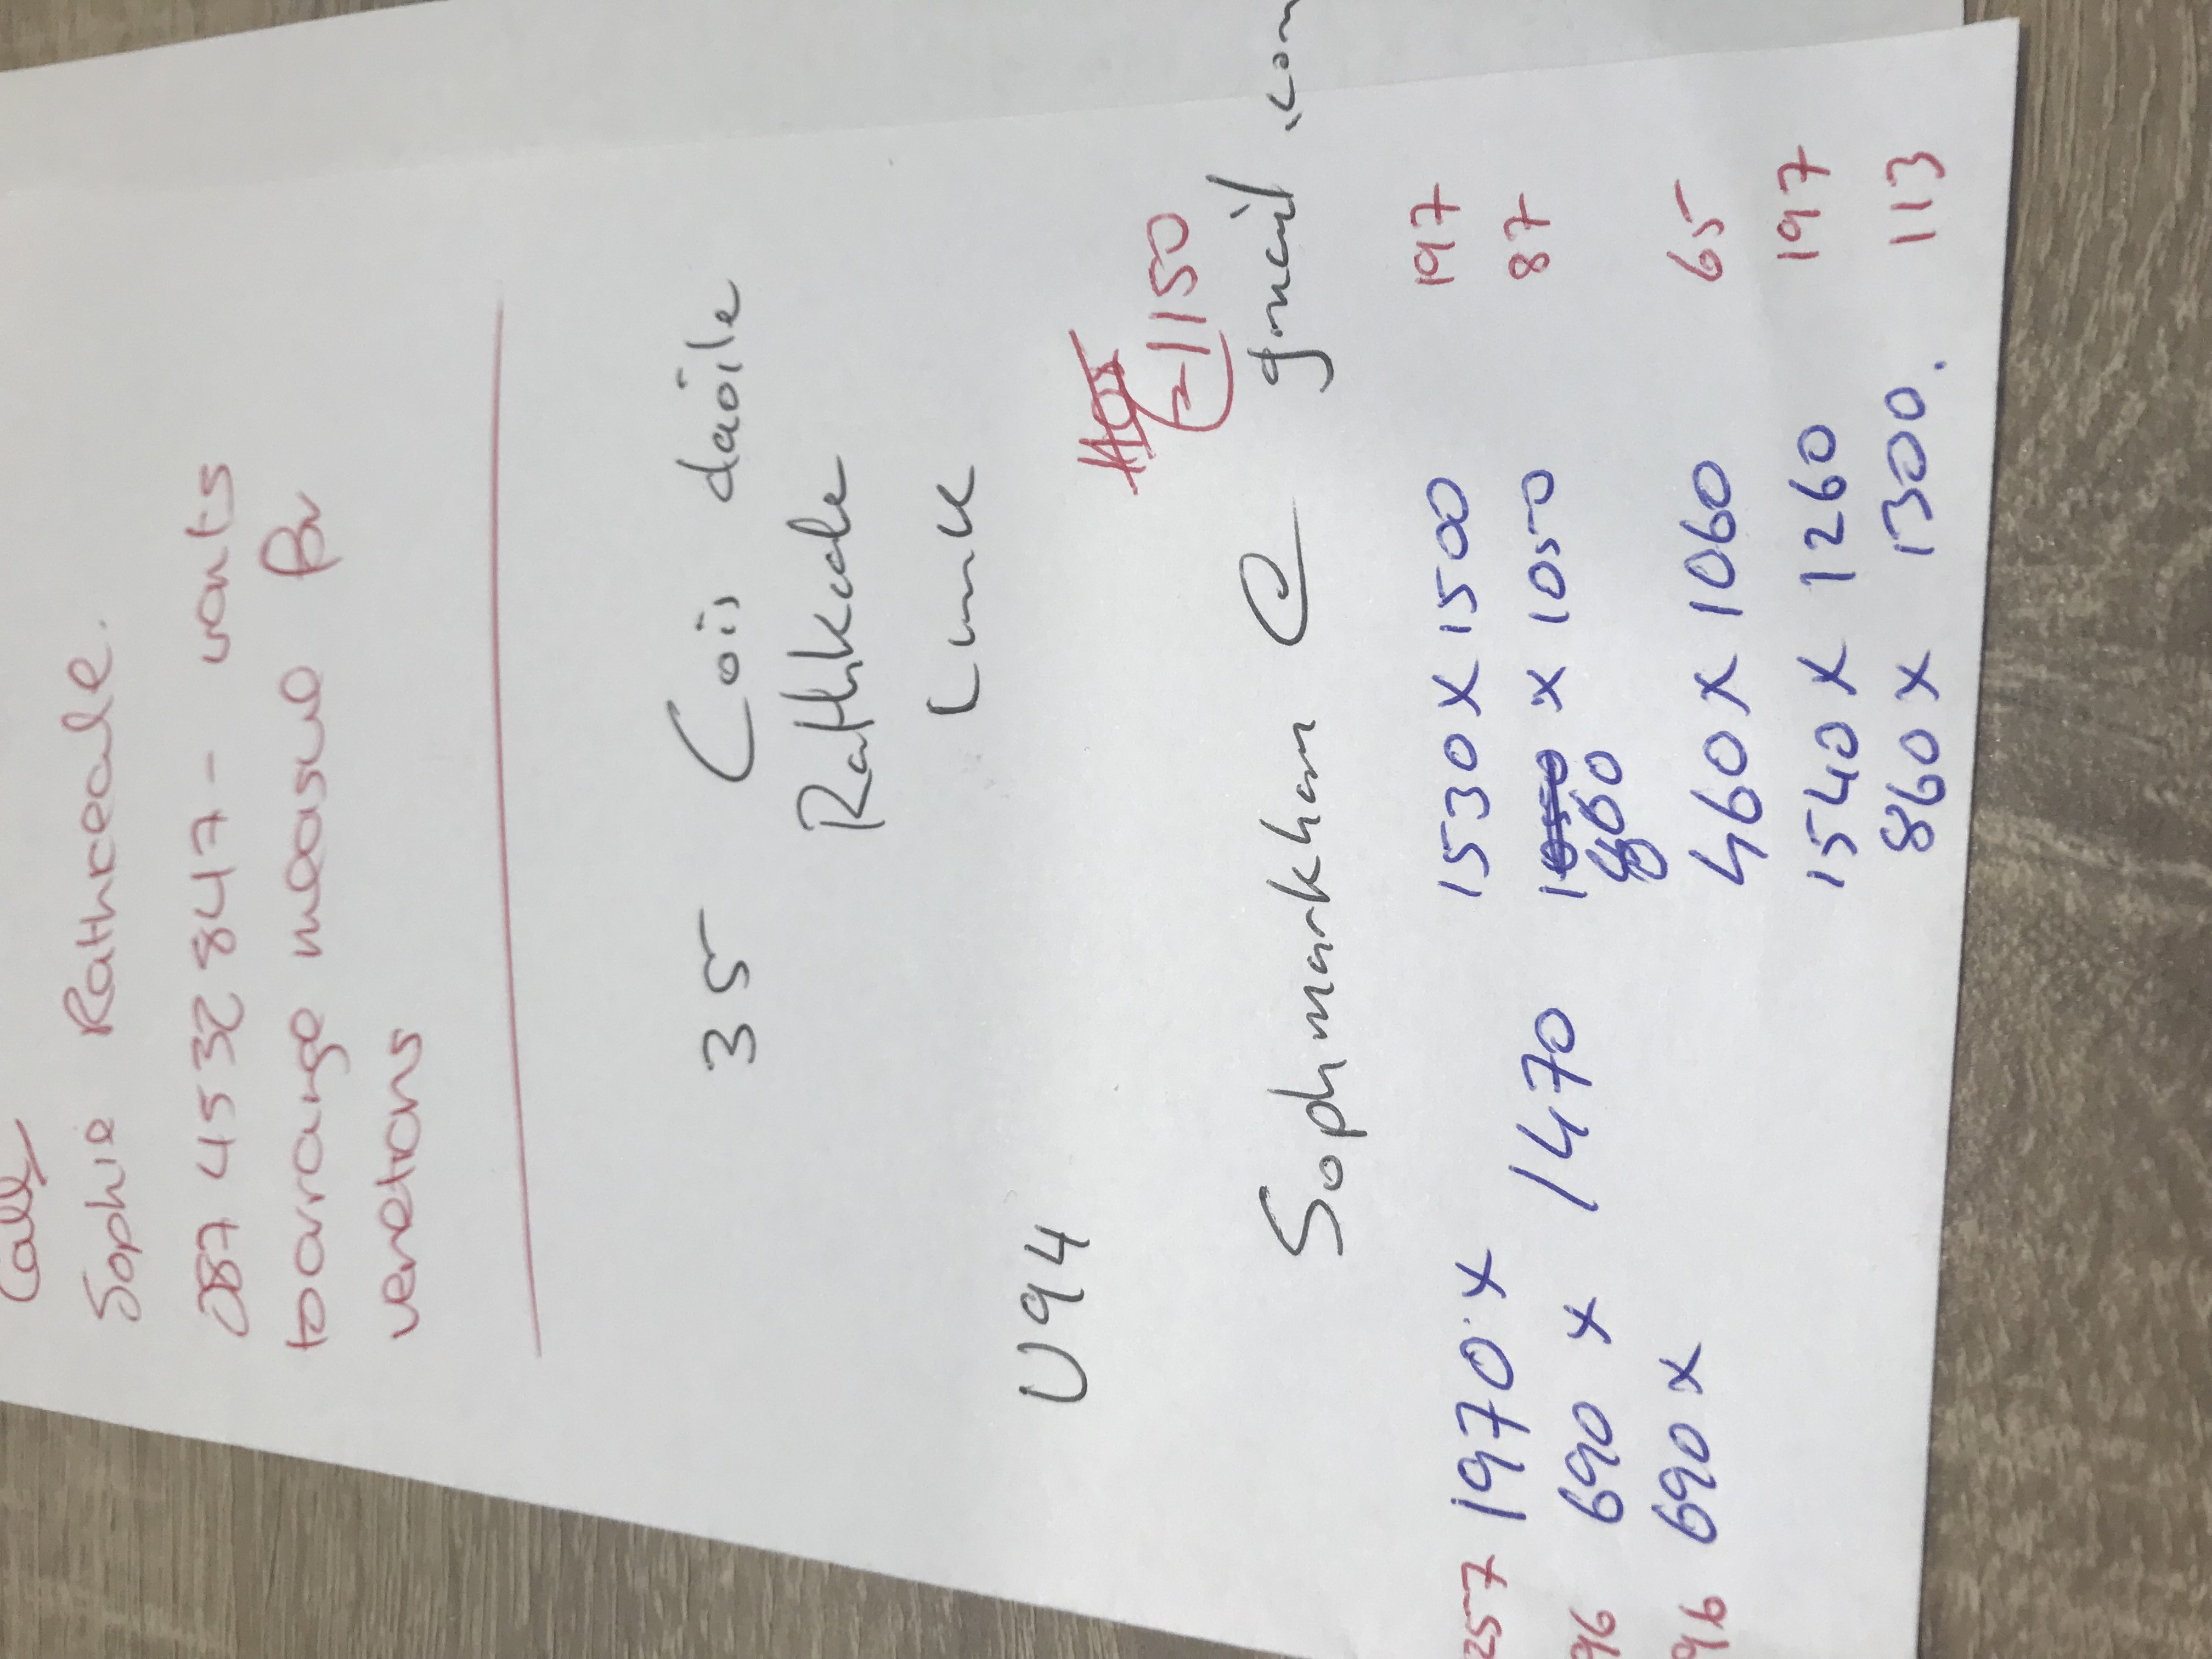 Call
Sophie Rathceale.
087 4532847 - wants
to arrange measure for
venetians
35 Cois daoile
Rathkeale
Lmk
U94
1150
Sophmarkham @ gmail .com
257 1970 x 1470
96 690 x
96 690 x
1530 x 1500 197
800 x 1050 87
460 x 1060 65
1540 x 1260 197
860 x 1300. 113